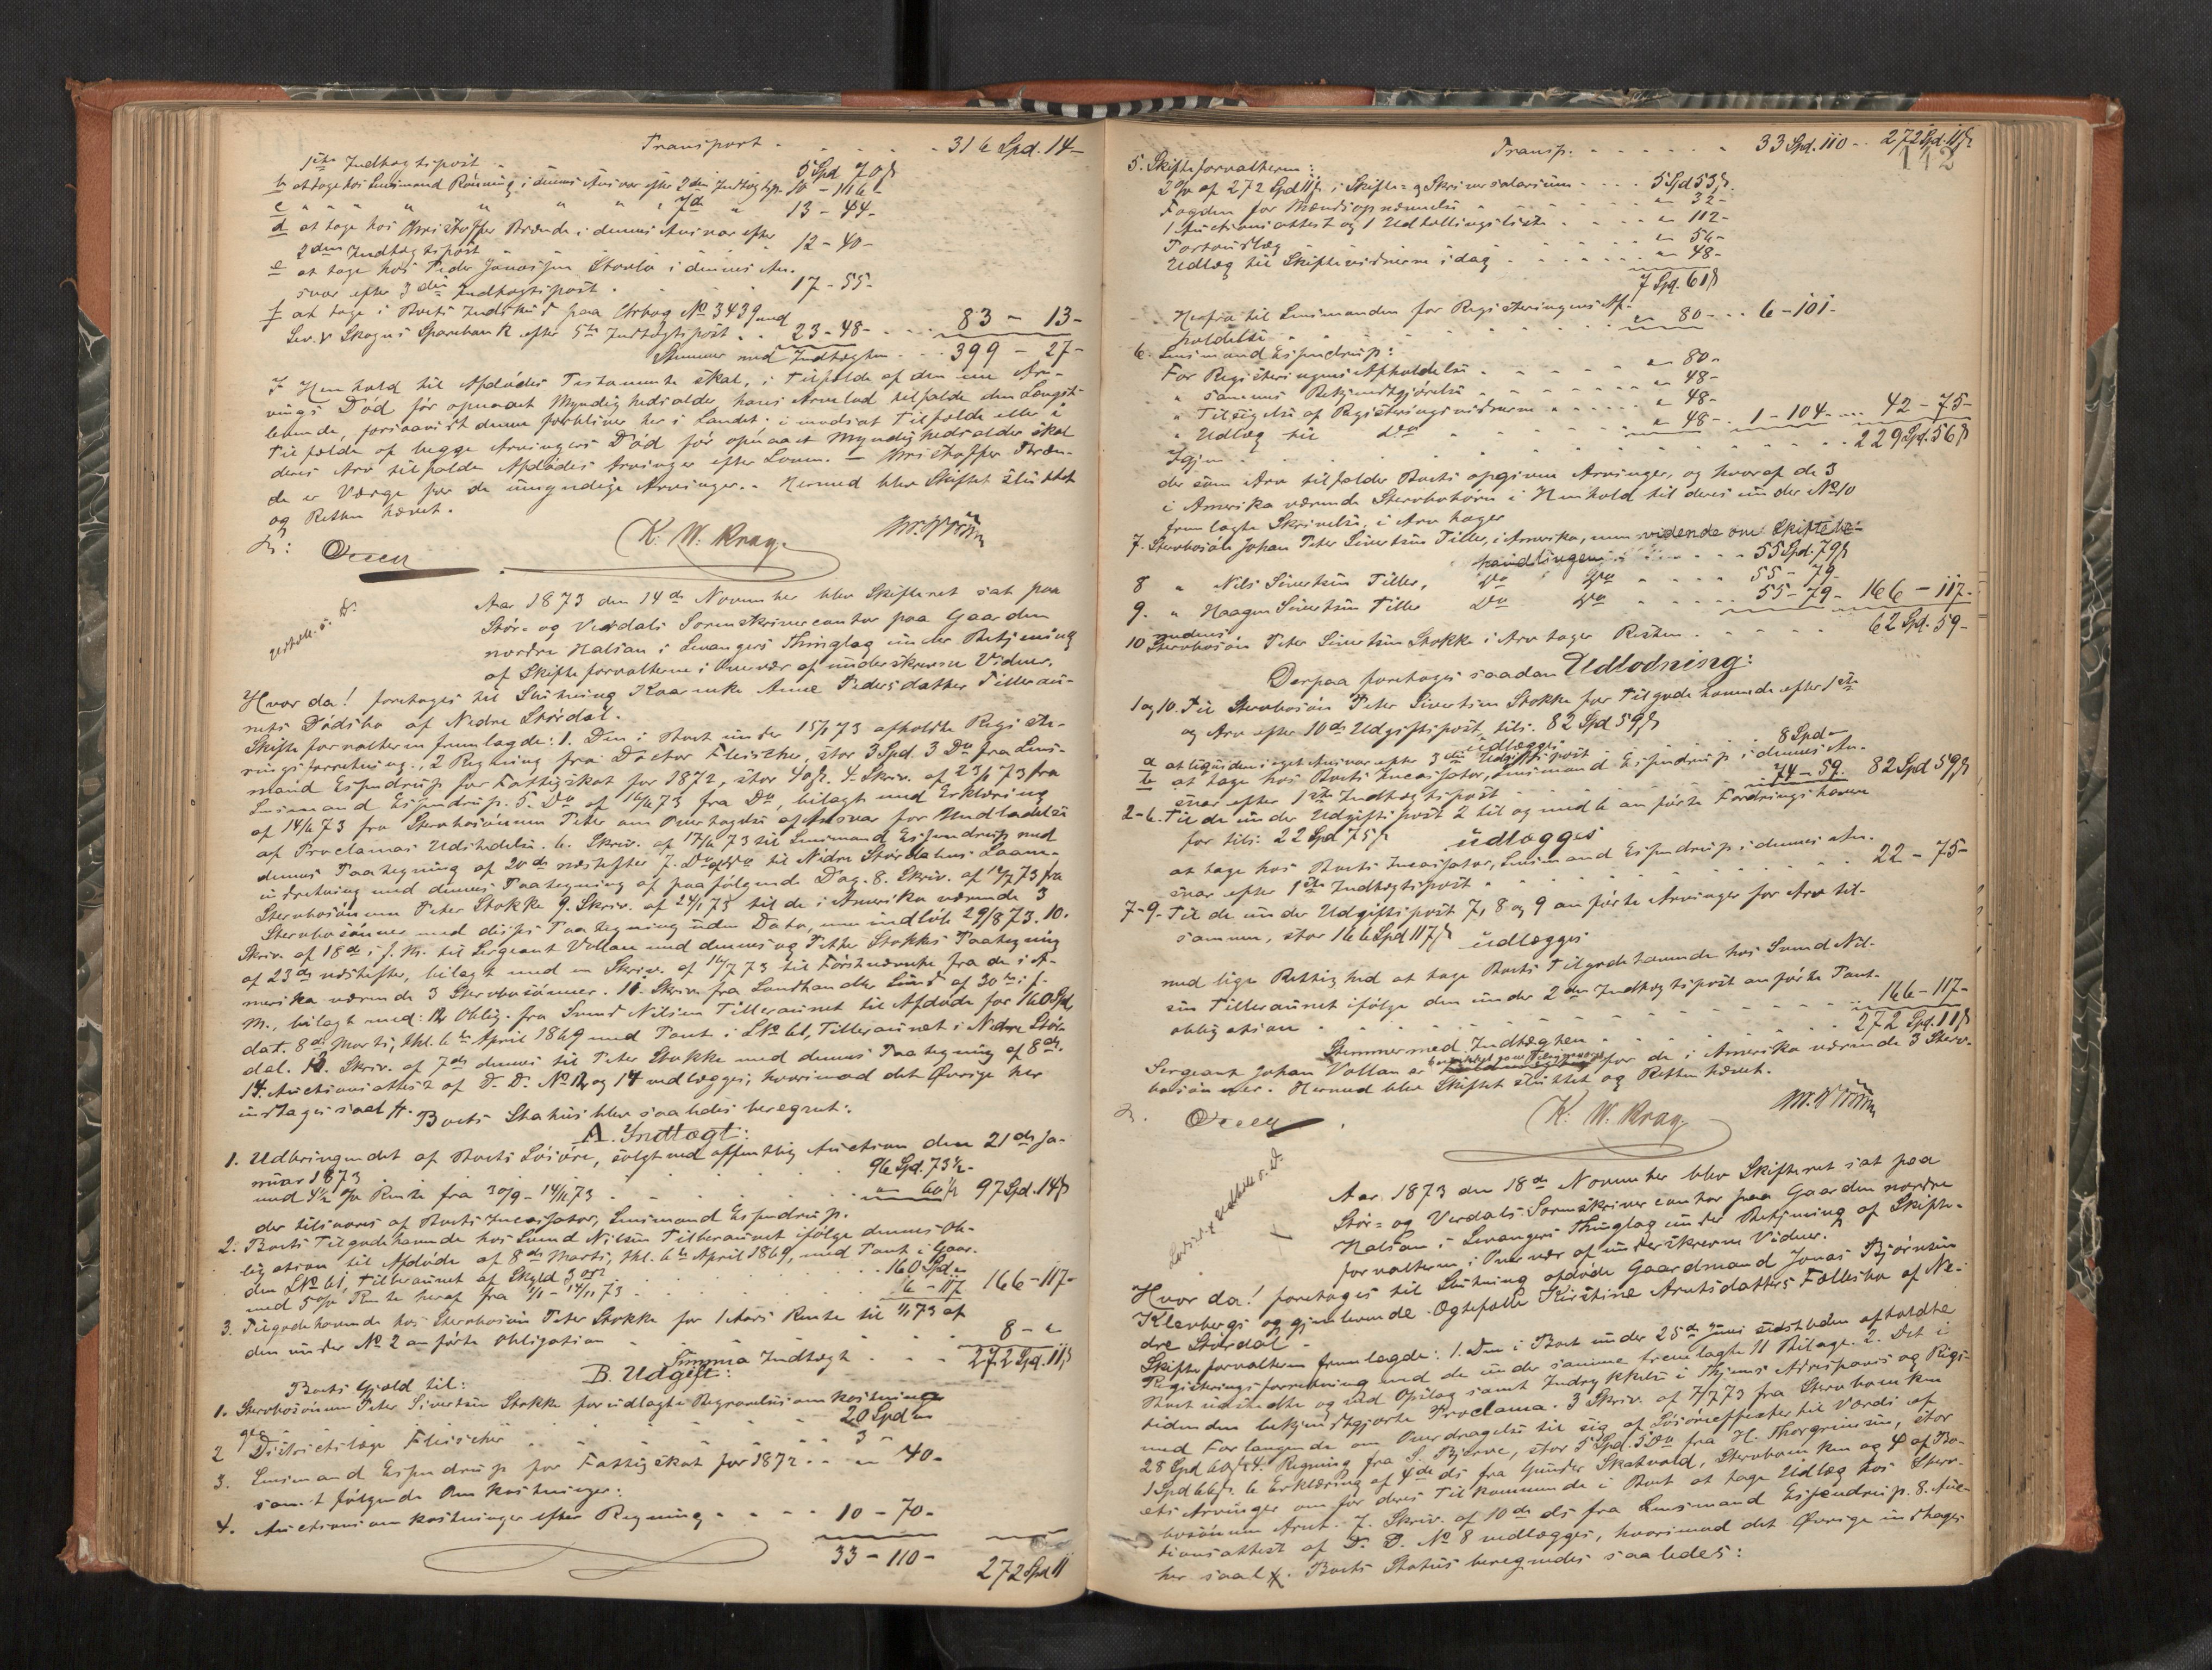 Transport . . . . . 316 Spd. 14-
1ste Indtægtspost . . . . 5 Spd 70 ß
b at tage hos Lensmand Rönning i dennes Ansvar efter 2den Indtægtsp. 10 - 116 -
c " " " " " " " 7de " 13 - 44-
d at tage hos Christoffer Brænde i dennes Ansvar efter
2den Indtægtspost . . . . 12 - 40-
e at tage hos Peder Jonassen i dennes An-
svar efter 3die Indtægtspost . . . 17 - 55-
f at tage i Boets Indskud paa Chrbog No 3439 ved
Lev. & Skogns Sparebank efter 5te Indtægtspost . . 23 - 48 - . . . 83 - 13-
Summer med Indtægten . . . 399 - 27-
I Henhold til Afdödes Testamente skal, i Tilfælde af den ene Ar-
vings Död för opnaaet Myndighedsalder hans Arvelod tilfalde den Længst-
levende, forsaavidt denne forbliver her i Landet. i modsat Tilfælde eller i
Tilfælde af begge Arvingers Död för opnaaet Myndighedsalder skal
deres Arv tilfalde Afdödes Arvinger efter Loven. - Christoffer Bræn-
de er Værge for de umyndige Arvinger. - Hermed blev Skiftet sluttet
og Retten hævet.
K. M. Krag.
Aar 1873 den 14de November blev Skifteret sat paa
Stör- og Værdals Sorenskrivercontor paa Gaarden
nordre Halsan i Levangers Thinglag under Betjening
af Skifteforvalteren i Overvær af underskrevne Vidner.
Hvor da! foretoges til Slutning Kaarenke Anne Pedersdatter Tilleraa-
nets Dödsbo af Nedre Stördal.
Skifteforvalteren fremlagde: 1. Den i Boet under 15/1 73 afholdte Registe-
ringsforretning., 2 Regning fra Doctor Fleischer, stor 3 Spd. 3 Do fra Lens-
mand Espendrup for Fattigskat for 1872, stor 40 ß. 4. Skriv. af 23/1 73 fra
Lensmand Espendrup. 5. Do af 16/6 73 fra Do, bilagt med Erklæring
af 14/6 73 fra Stervbosönnen Peter om Overtagelse af Ansvar for Undladelse
af Proclamas Udstedelse. 6. Skriv. af 17/6 73 til Lensmand Espendrup med
dennes Paategning af 20de næstefter 7. Do af Do til Nedre Stördalens Laane-
indretning med dennes Paategning af paafölgende Dag. 8. Skriv. af 12/7 73 fra
Stervbosönnen Peter Stokke 9. Skriv. af 24/1 73 til de i Amerika værende 3
Stervbosönner med disses Paategning uden Dato, men indlöb 29/8 73. 10.
Skriv. af 18de i f. M. til Sergeant Vollan med dennes og Peter Stokkes Paategning
af 23de næstefter, bilagt med en Skriv. af 16/7 73 til Förstnævnte fra de i A-
merika værende 3 Stervbosönner. 11. Skriv. fra Landhandler Lund af 30te i f.
M., bilagt med: 12 Oblig. fra Svend Nilsen Tilleraunet til Afdöde for 160 Spd,
dat. 8de Marts, thl. 6te April 1869 med Pant i L No 61, Tilleraunet i Nedre Stör-
dal. 13. Skriv. af 7de dennes til Peter Stokke med dennes Paategning af 8de.
14. Auctionsattest af D. D. No 12 og 14 vedlægges, hvorimod det Övrige her
indtages saal. Boets Status blev saaledes beregnet:
A. Indtægt:
1. Udbringendet af Boets Lösöre, solgt ved offentlig Auction den 21de Ja-
nuar 1873 . . . . . 96 Spd. 73½-
med 4½ % Rente fra 30/9 - 14/11 73 . . . . " 60½ 97 Spd. 14 ß
der tilsvares af Boets Incassator, Lensmand Espendrup.
2. Boets Tilgodehavende hos Svend Nilsen Tilleraunet ifölge dennes Ob-
ligation til Afdöde af 8de Marts, thl. 6te April 1869, med Pant i Gaar-
den L No 61, Tilleraunet af Skyld 3 ort . . . . 160 Spd "
med 5 % Rente heraf fra 1/1 - 14/11 73 . . . . 6 - 117 166 - 117-
3. Tilgodehavende hos Stervbosön Peter Stokke for 1 Aars Rente til 1/1 73 af
den under No 2 anförte Obligation . . . . . 8 - "
Summa Indtægt . . . 272 Spd. 11 ß
B. Udgift:
Boets Gjæld til:
1. Stervbosönnen Peter Sivertsen Stokke for udlagte Begravelsesomkostnin-
ger . . . . 20 Spd "
2 Districtslæge Fleischer . . . . 3 "
3. Lensmand Espendrup for Fattigskat for 1872 . . . " 40-
samt fölgende Omkostninger:
4. Auctionsomkostninger efter Regning . . . . 10 - 70-
33 - 110 - 272 Spd 11
142
Transp. . . . . . 33 Spd. 110 - . . 272 Spd. 11 ß
5. Skifteforvalteren:
2 % af 272 Spd 11 ß i Skifte- og Skriversalarium . . . 5 Spd 53 ß.
Fogden for Mændsopnævnelse . . . . . " 32-
1 Auctionsattest og 1 Udlodningsliste . . . . " 112-
Portoudlæg . . . . . " 56-
Udlæg til Skiftevidnerne idag . . . . . " 48-
7 Spd. 61 ß
Herfra til Lensmanden for Registreringens Af-
holdelse . . . . . " 80 - . . 6 - 101-
6. Lensmand Espendrup:
For Registreringens Afholdelse . . . . " 80-
" sammes Bekjendtgjörelse . . . . . " 48-
" Tilsigelse af Registreringsvidnerne . . . . " 48-
" Udlæg til do . . . . " 48 - . 1 - 104 - . . . 42 - 75-
Igjen . . . . . . . . 229 Spd. 56 ß
der som Arv tilfalder Boets opgivne Arvinger, og hvoraf de 3
i Amerika værende Stervbosönner i Henhold til deres under No 10
fremlagte Skrivelse, i Arv tager
7. Stervbosön Johan Peter Sivertsen Tiller, i Amerika, men vidende om Skiftebe-
handlingen . . . . 55 Spd. 79 ß
8 " Nils Sivertsen Tiller, Do Do . . . . 55 - 79-
9. " Haagen Sivertsen Tiller Do Do . . . . 55 - 79 - 166 - 117-
medens
10 Stervbosön Peter Sivertsen Stokke i Arv tager Resten . . . . . 62 Spd. 59-
Derpaa foretoges saadan Udlodning:
1 og 10. Til Stervbosön Peter Sivertsen Stokke for Tilgodehavende efter 1ste
og Arv efter 10de Udgiftspost, tils. 82 Spd 59 ß
udlægges
a at i eget Ansvar efter 3die . . . 8 Spd "
b at tage hos Boets Incassator, Lensmand Espendrup i dennes An-
svar efter 1ste Indtægtspost . . . . 74 - 59. 82 Spd 59 ß
2-6. Til de under Udgiftspost 2 til og med 6 anförte Fordringshavere
for tils. 22 Spd 75 ß udlægges
at tage hos Boets Incassator, Lensmand Espendrup i dennes An-
svar efter 1ste Indtægtspost . . . . . . 22 - 75-
7-9. Til de under Udgiftspost 7, 8 og 9 anförte Arvinger for Arv til-
sammen, stor 166 Spd 117 ß udlægges
med lige Rettighed at tage Boets Tilgodehavende hos Svend Nil-
sen Tilleraunet ifölge den under 2den Indtægtspost anförte Pant-
obligation . . . . . . . . 166 - 117-
Summer med Indtægten . . . . . . 272 Spd. 11 ß
Sergeant Johan Vollan er for de i Amerika værende 3 Sterv-
bosönner. Hermed blev Skiftet sluttet og Retten hævet.
K. M. Krag.
Aar 1873 den 18de November blev Skifteret sat paa
Stör- og Værdals Sorenskrivercontor paa Gaarden nordre
Halsan i Levangers Thinglag under Betjening af Skifte-
forvalteren i Overvær af underskrevne Vidner.
Hvor da! foretoges til Slutning afdöde Gaardmand Jonas Björnsen
Klevbergs og gjenlevende Ægtefælle Kirstine Arntsdatters Fællesbo af Ne-
dre Stördal -
Skifteforvalteren fremlagde: 1. Den i Boet under 25de Juni sidstleden afholdte
Registreringsforretning med de under samme fremlagte 11 Bilage. 2. Det i
Boet udstedte og ved Opslag samt Indrykkelse i Thjems Adresseavis og Rigs-
tidenden bekjendtgjorte Proclama. 3 Skriv. af 7/7 73 fra Stervboenken
med Forlangende om Overdragelse til sig af Lösöreeffecter til Værdi af
28 Spd 60 ß. 4. Regning fra S. Bjerve, stor 5 Spd. 5 Do fra H. Thorgrimsen, stor
1 Spd 66 ß. 6 Erklæring af 4de ds fra Gunder Skatvold, Stervboenken og 4 af Bo-
ets Arvinger om for deres Tilkommende i Boet at tage Udlæg hos Sterv-
bosönnen Arnt. 7. Skriv. af 10de ds fra Lensmand Espendrup. 8. Auc-
tionsattest af D. D. No 8 vedlægges, hvorimod det Övrige indtages
her saal. Boets Status beregnedes saaledes: